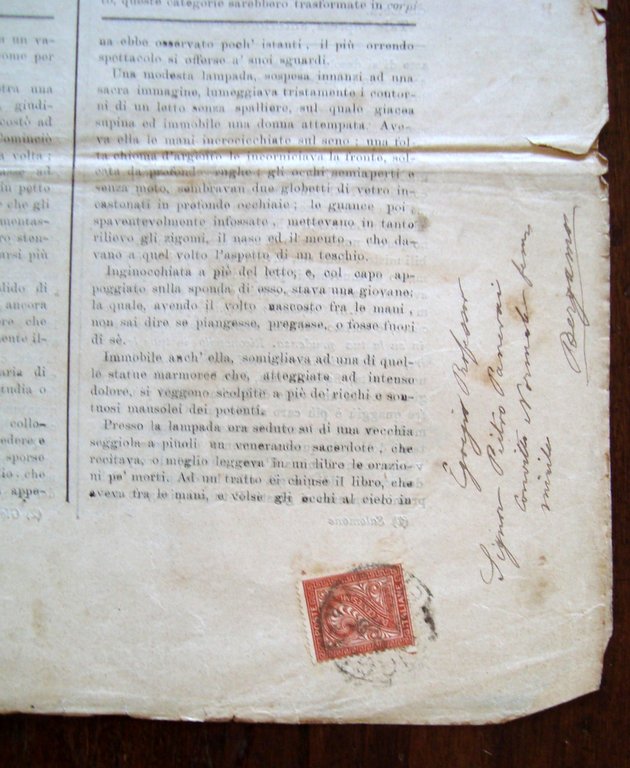 to, queste categorie sarebbero trasformate in corpi,
un va-
ome per
tra una
giudi-
costò ad
Cominciò
volta;
ad
in petto
che gli
mentas-
ro sten-
arsi più
dido di
ancora
re che
ente il-
aria di
tudia o
collo-
edere e
sparse
io, che
a appe-
na ebbe osservato poch' istanti, il più orrendo
spettacolo si offorse a' suoi sguardi.
Una modesta lampada, sospesa innanzi ad una
sacra immagine, lumeggiava tristamente i contor-
ni di un letto senza spalliere, sul quale giacea
supina ed immobile una donna attempata. Ave-
va ella le mani incrocicchiate sul seno; una fol-
ta chioma d'argento le incorniciava la fronte, sol-
cata da profonde rughe; gli occhi semiaperti e
senza moto, sembravan due globetti di vetro in-
castonati in profonde occhiaie; le guance poi
spaventevolmente infossate, mettevano in tanto
rilievo gli zigomi, il naso ed il mento, che da-
vano a quel volto l'aspetto di un teschio.
Inginocchiata a piè del letto, e, col capo ap-
poggiato sulla sponda di esso, stava una giovane;
la quale, avendo il volto nascosto fra le mani,
non sai dire se piangesse, pregasse, o fosse fuori
di sè.
Immobile anch' ella, somigliava ad una di quel-
le statue marmoree che, atteggiate ad intenso
dolore, si veggono scolpite a piè de' ricchi e son-
tuosi mausolei dei potenti.
Presso la lampada ora seduto su di una vecchia
seggiola a piuoli un venerando sacerdote, che
recitava, o meglio leggeva in un libro le orazio-
ni pe' morti. Ad un tratto ei chiuse il libro, che
aveva fra le mani, e volse gli occhi al cielo in
Egregio Professor
Signor Pietro Pancrai
Convitto Normale fem
minile
Bergamo
POSTE
DUE
ITALIANE